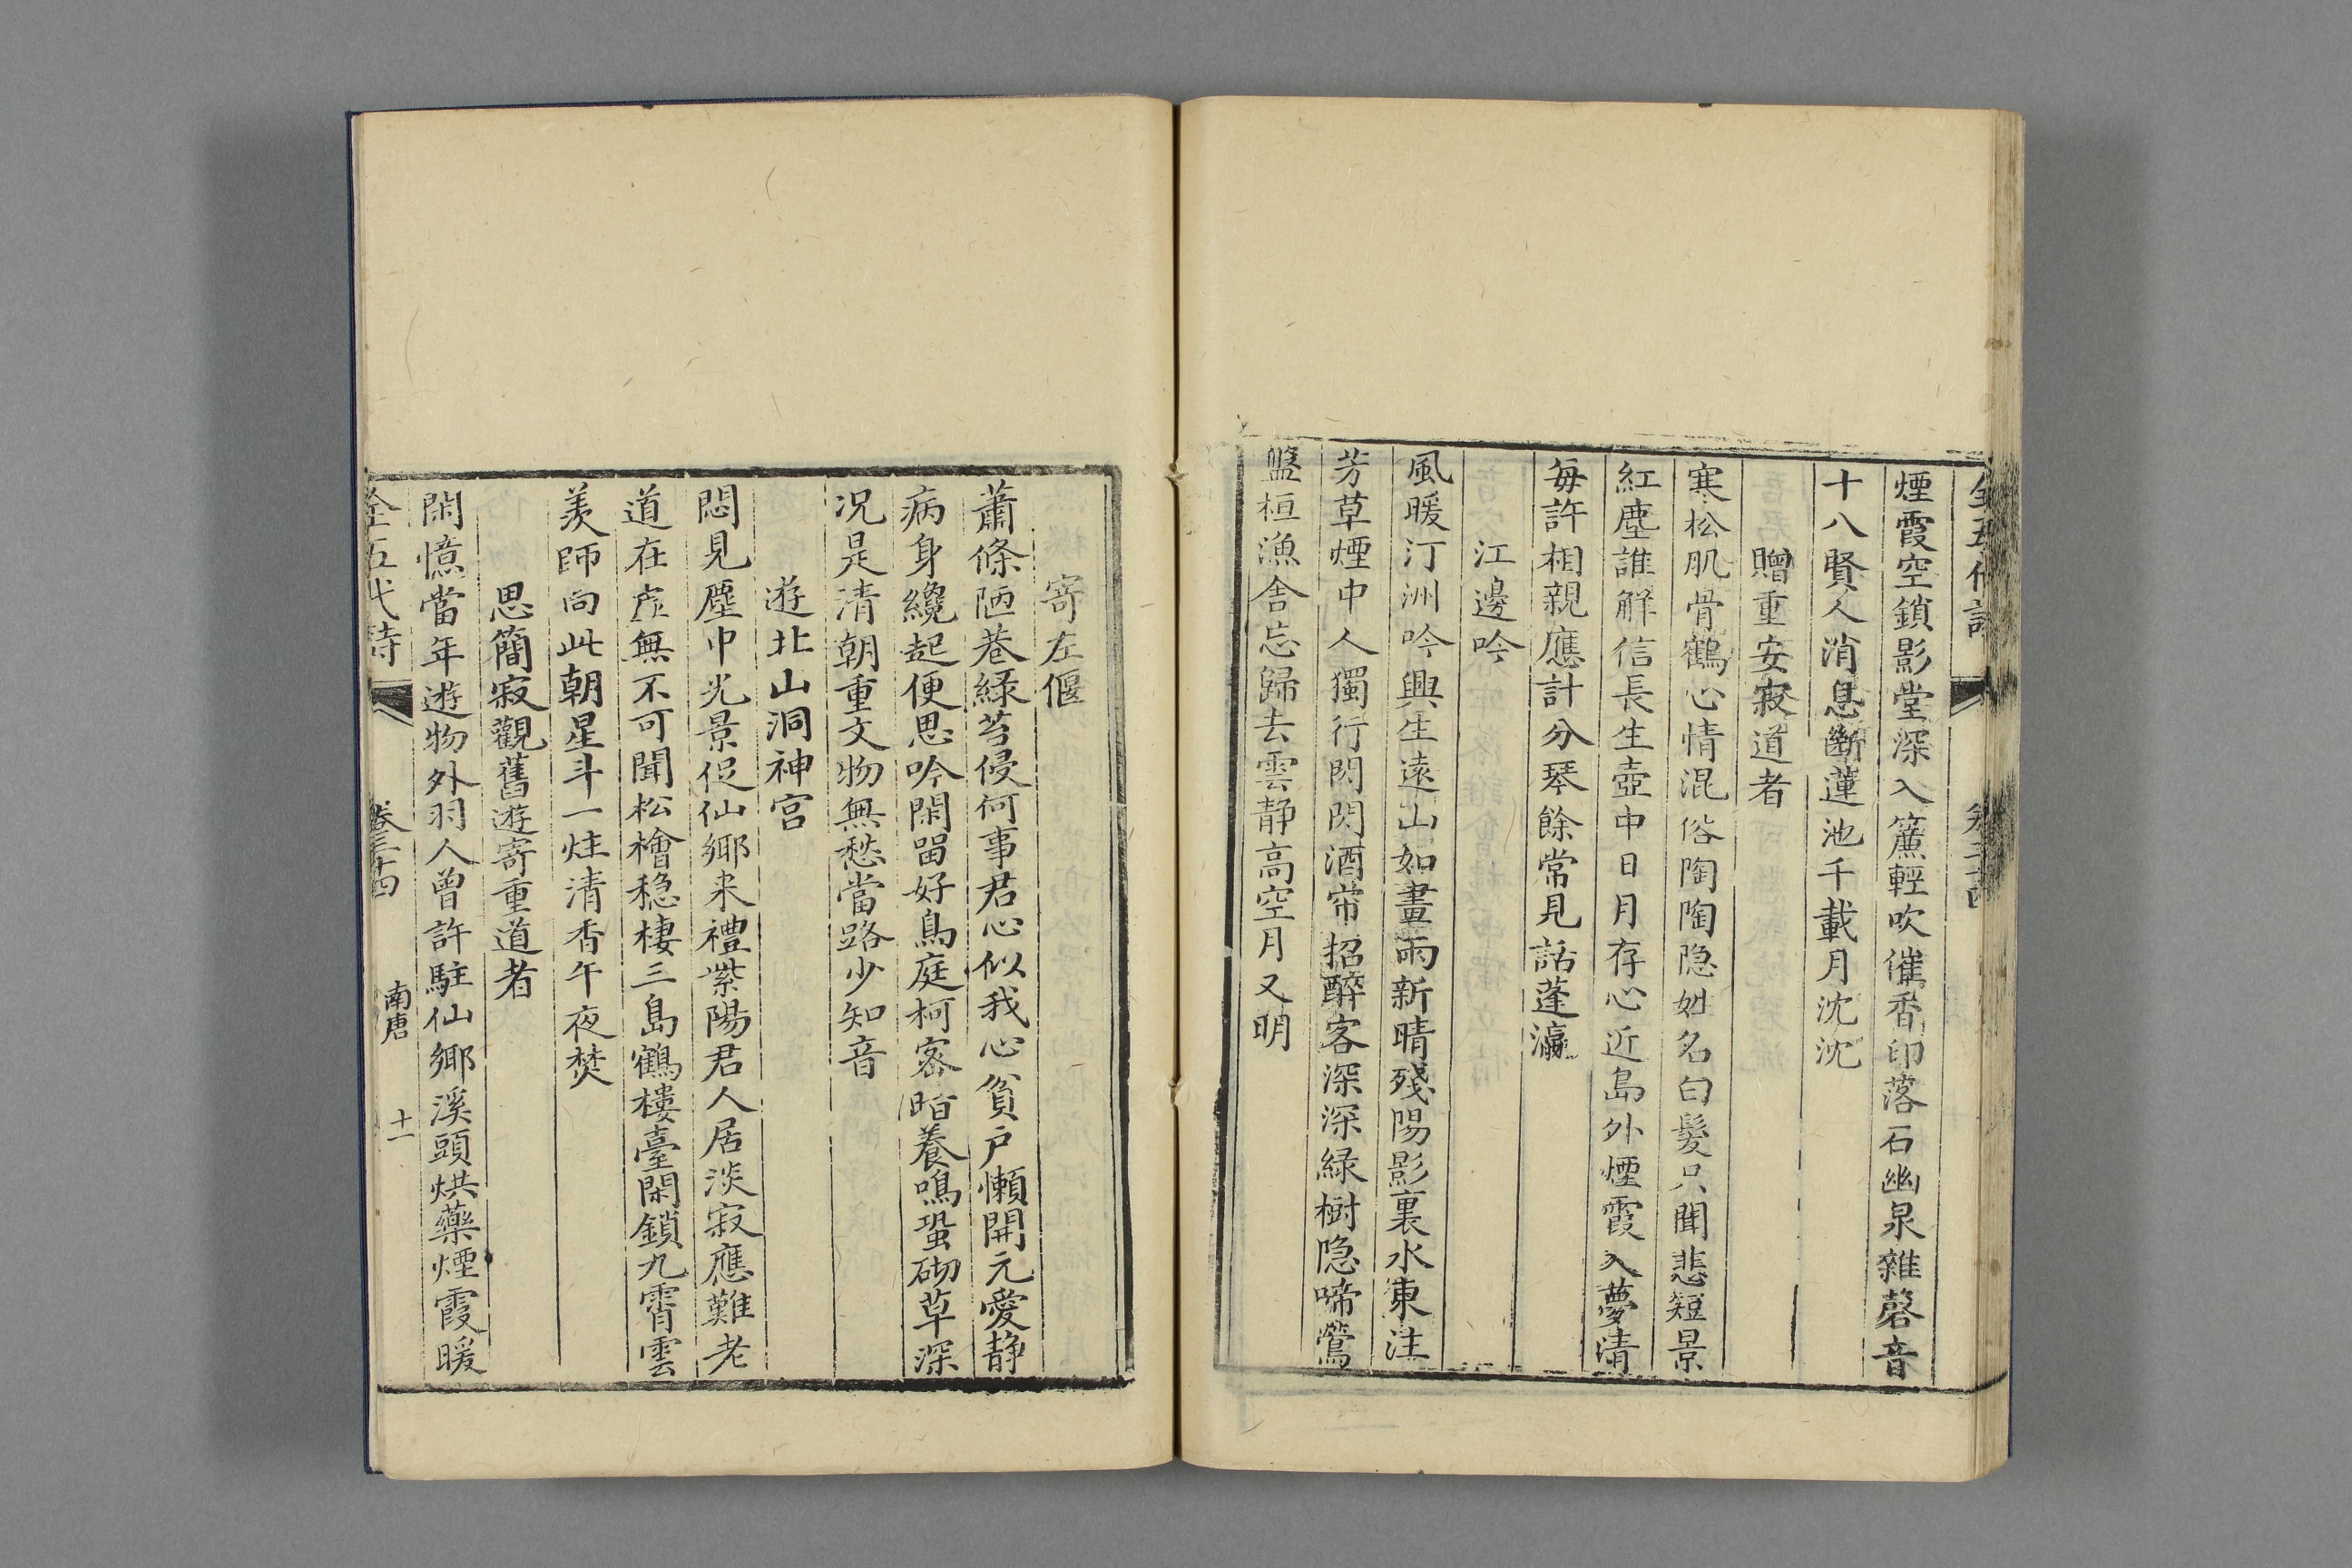 煙霞空鎖影堂深入簾輕吹催香印落石幽泉雜磬音
十八賢人消息斷蓮池千載月沈沈
贈重安寂道者
寒松肌骨鶴心情混俗陶陶隐姓名白髮只聞悲短景
紅塵誰解信長生壺中日月存心近島外煙霞入夢清
每許相親應計分琴餘常見話蓬瀛
江邊吟
風暖汀洲吟興生遠山如畫雨新晴殘陽影裏水東注
芳草煙中人獨行閃閃酒帘招醉客深深緑樹隐啼鶯
盤桓漁舍忘歸去雲静高空月又明
寄左偃
蕭條陋巷緑苔侵何事君心似我心貧户懶開元愛静
病身纔起便思吟閑留好鳥庭柯密暗養鳴蛩砌草深
况是清朝重文物無愁當路少知音
遊北山洞神宫
悶見塵中光景促仙鄉來禮紫陽君人居淡寂應難老
道在虚無不可聞松檜穏棲三島鶴樓臺閑鎖九霄雲
羨師向此朝星斗一炷清香午夜焚
思簡寂觀舊遊寄重道者
閑憶當年遊物外羽人曾許駐仙鄉溪頭烘藥煙霞暖
全五代詩 卷三十四 南唐 十一